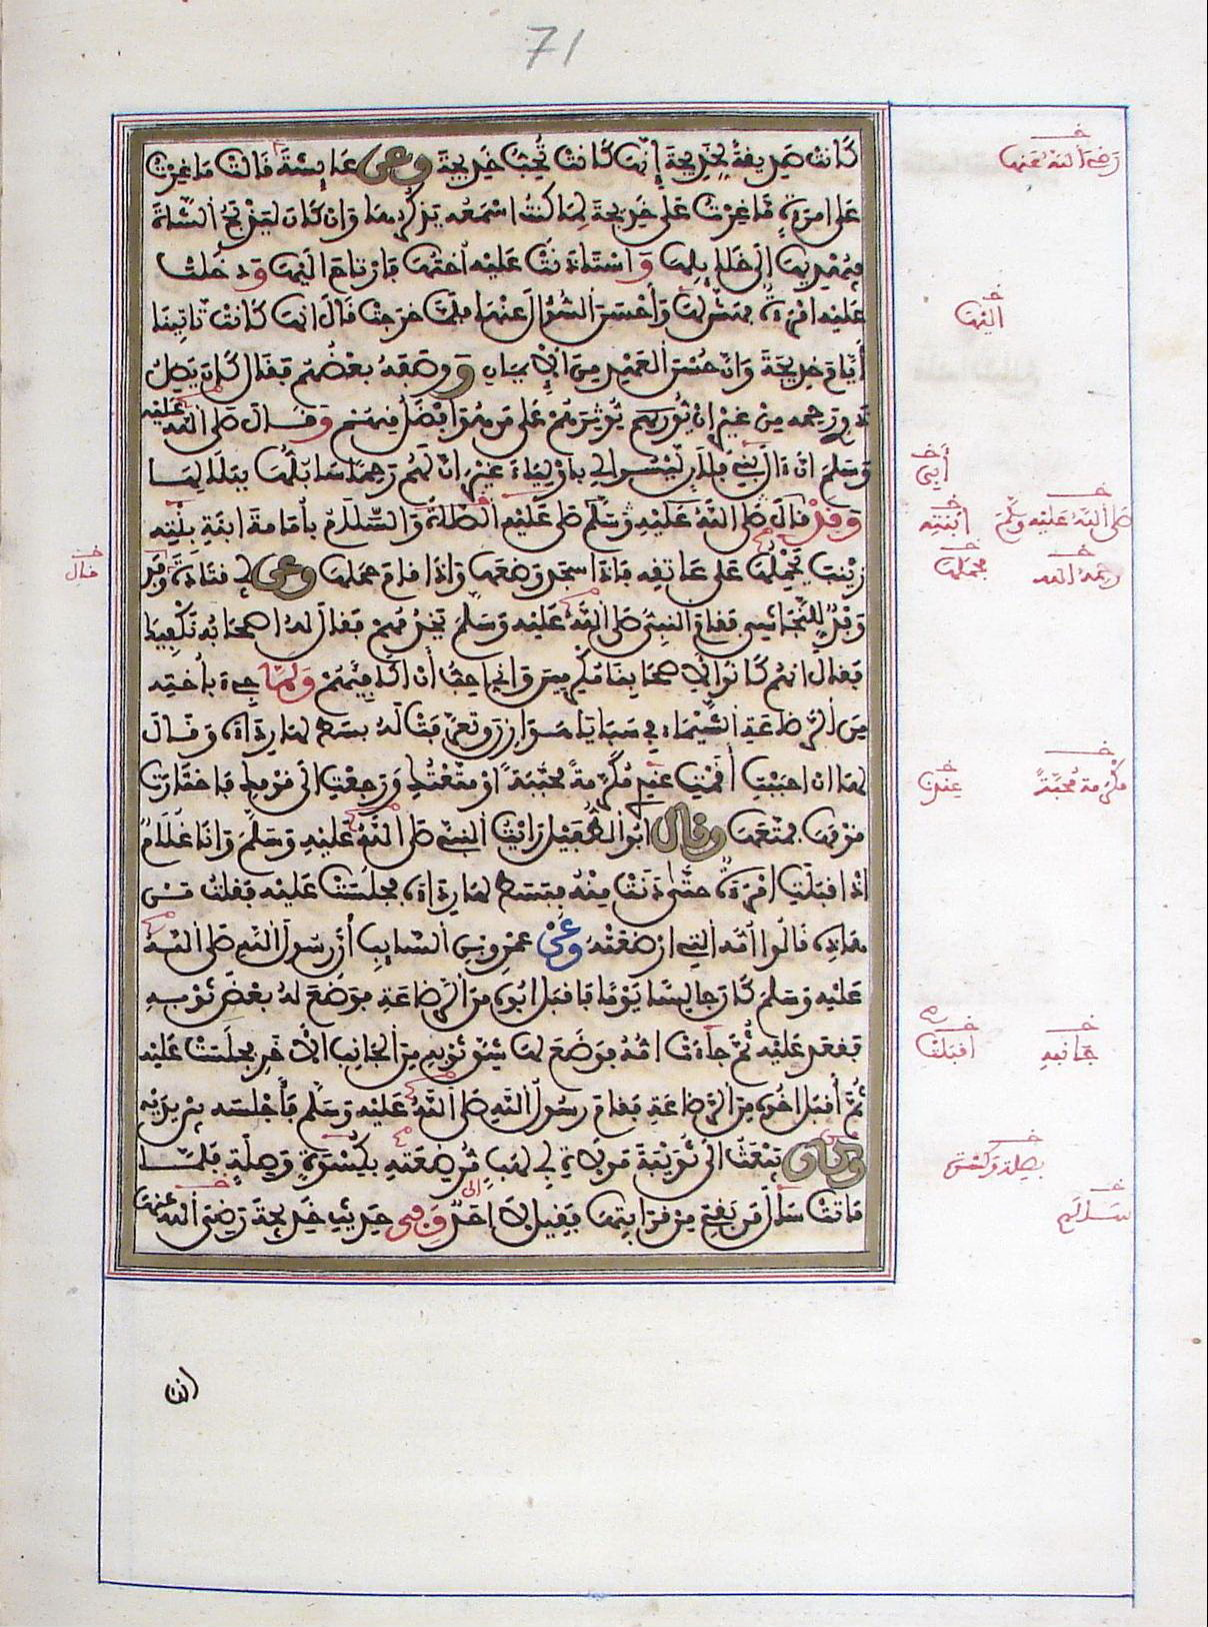 71
كَانَتْ صَدِيقَةً لِخَدِيجَةَ إِنَّهَا كَانَتْ تُحِبُّ خَدِيجَةَ وعن عَائِشَةَ قَالَتْ مَا غِرْتُ
عَلَى امْرَأَةٍ مَا غِرْتُ عَلَى خَدِيجَةَ لِمَا كُنْتُ أَسْمَعُهُ يَذْكُرُهَا وَإِنْ كَانَ لَيَذْبَحُ الشَّاةَ
فَيُهْدِيهَا إِلَى خَلَائِلِهَا وَاسْتَأْذَنَتْ عَلَيْهِ أُخْتُهَا فَارْتَاحَ إِلَيْهَا وَدَخَلَتْ
عَلَيْهِ امْرَأَةٌ فَهَشَّ لَهَا وَأَحْسَنَ السُّؤَالَ عَنْهَا فَلَمَّا خَرَجَتْ قَالَ إِنَّهَا كَانَتْ تَأْتِينَا
أَيَّامَ خَدِيجَةَ وَإِنَّ حُسْنَ الْعَهْدِ مِنَ الْإِيمَانِ وَوَصَفَهُ بَعْضُهُمْ فَقَالَ كَانَ يَصِلُ
ذَوِي رَحِمِهِ مِنْ غَيْرِ أَنْ يُؤْثِرَهُمْ عَلَى مَنْ هُوَ أَفْضَلُ مِنْهُمْ وَقَالَ صَلَّى اللَّهُ عَلَيْهِ
وَسَلَّمَ إِنَّ آلَ بَنِي فُلَانٍ لَيْسُوا لِي بِأَوْلِيَاءَ غَيْرَ أَنَّ لَهُمْ رَحِمًا سَأَبُلُّهَا بِبَلَالِهَا
وَقَدْ صَلَّى عَلَيْهِ الصَّلَاةُ وَالسَّلَامُ بِأُمَامَةَ ابْنَةِ بِنْتِهِ
زَيْنَبَ يَحْمِلُهَا عَلَى عَاتِقِهِ فَإِذَا سَجَدَ وَضَعَهَا وَإِذَا قَامَ حَمَلَهَا وعن أبي قَتَادَةَ وَفَدَ
وَفْدٌ لِلنَّجَاشِيِّ فَقَامَ النَّبِيُّ صَلَّى اللَّهُ عَلَيْهِ وَسَلَّمَ يَخْدُمُهُمْ فَقَالَ لَهُ أَصْحَابُهُ نَكْفِيكَ
فَقَالَ إِنَّهُمْ كَانُوا لِأَصْحَابِنَا مُكْرِمِينَ وَإِنِّي أُحِبُّ أَنْ أُكَافِئَهُمْ وَلَمَّا جِيءَ بِأُخْتِهِ
مِنَ الرَّضَاعَةِ الشَّيْمَاءِ فِي سَبَايَا هَوَازِنَ وَتَعَرَّفَتْ لَهُ بَسَطَ لَهَا رِدَاءَهُ وَقَالَ
لَهَا إِنْ أَحْبَبْتِ أَقَمْتِ عِنْدِي مُكْرَمَةً مُحَبَّبَةً أَوْ مَتَّعْتُكِ وَرَجَعْتِ إِلَى قَوْمِكِ فَاخْتَارَتْ
قَوْمَهَا فَمَتَّعَهَا وقال أَبُو الطُّفَيْلِ رَأَيْتُ النَّبِيَّ صَلَّى اللَّهُ عَلَيْهِ وَسَلَّمَ وَأَنَا غُلَامٌ
إِذْ أَقْبَلَتِ امْرَأَةٌ حَتَّى دَنَتْ مِنْهُ فَبَسَطَ لَهَا رِدَاءَهُ فَجَلَسَتْ عَلَيْهِ فَقُلْتُ مَنْ
هَذِهِ قَالُوا أُمُّهُ الَّتِي أَرْضَعَتْهُ وَعَنْ عَمْرِو بْنِ السَّائِبِ أَنَّ رَسُولَ اللَّهِ صَلَّى اللَّهُ
عَلَيْهِ وَسَلَّمَ كَانَ جَالِسًا يَوْمًا فَأَقْبَلَ أَبُوهُ مِنَ الرَّضَاعَةِ فَوَضَعَ لَهُ بَعْضَ ثَوْبِهِ
فَقَعَدَ عَلَيْهِ ثُمَّ جَاءَتْ أُمُّهُ فَوَضَعَ لَهَا شِقَّ ثَوْبِهِ مِنَ الْجَانِبِ الْآخَرِ فَجَلَسَتْ عَلَيْهِ
ثُمَّ أَقْبَلَ أَخُوهُ مِنَ الرَّضَاعَةِ فَقَامَ رَسُولُ اللَّهِ صَلَّى اللَّهُ عَلَيْهِ وَسَلَّمَ فَأَجْلَسَهُ بَيْنَ يَدَيْهِ
وكان يَبْعَثُ إِلَى ثُوَيْبَةَ مَوْلَاةِ أَبِي لَهَبٍ مُرْضِعَتِهِ بِكِسْوَةٍ وَصِلَةٍ فَلَمَّا
مَاتَتْ سَأَلَ مَنْ بَقِيَ مِنْ قَرَابَتِهَا فَقِيلَ لَا أَحَدَ وَفِي حَدِيثِ خَدِيجَةَ رَضِيَ اللَّهُ عَنْهَا
رَضِيَ اللَّهُ عَنْهَا
إليها
أبي
صَلَّى اللَّهُ عَلَيْهِ وَسَلَّمَ
ابْنَتِهِ
رحمه الله
فحملها
قال
مُكْرَمَة مُحَبَّةً
عِنْدِي
جانبه
أقبلت
بصلة وكسوة